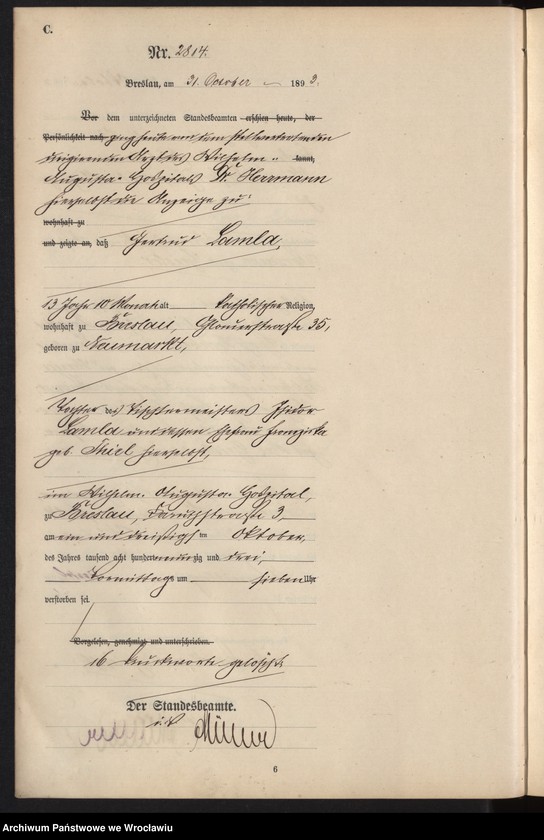 C.
Nr. 2814.
Breslau, am 31. October 1893.
Vor dem unterzeichneten Standesbeamten erschien heute, der
Persönlichkeit nach ging heute von dem stellvertretenden
dirigirenden Arzt des Wilhelm- kannt,
Augusta-Hospitals Dr. Herrmann
hierselbst die Anzeige zu,
wohnhaft zu
und zeigte an, daß Gertrud Lamla,
13 Jahr 10 Monat alt katholischer Religion,
wohnhaft zu Breslau, 35,
geboren zu Neumarkt,
Tochter des Tischlermeisters Isidor
Lamla und dessen Ehefrau Franziska
geb. Thiel hierselbst,
im Wilhelm-Augusta-Hospital,
zu Breslau, 3,
am ein und dreißigsten Oktober,
des Jahres tausend acht hundert neunzig und drei,
Vormittags um sieben Uhr
verstorben sei.
Vorgelesen, genehmigt und unterschrieben.
16 Druckworte gelöscht.
Der Standesbeamte.
i.V.
6
Archiwum Państwowe we Wrocławiu